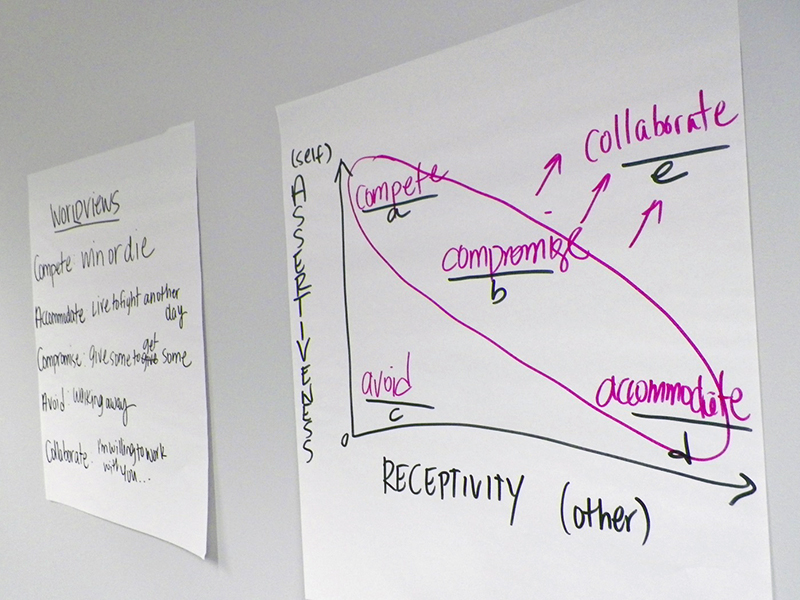 WORLDVIEWS
Compete: win or die
Accommodate: Live to fight another
day
Compromise: give some to get some
Avoid: walking away
Collaborate: I'm willing to work
with you...
(self)
ASSERTIVENESS
compete
a
collaborate
e
compromise
b
avoid
c
accommodate
d
0
RECEPTIVITY (other)